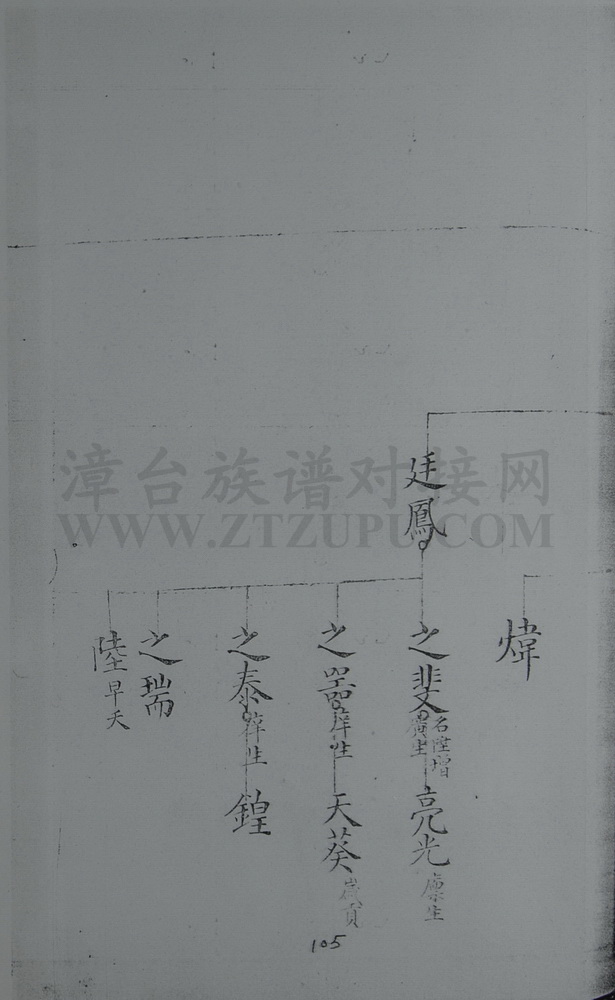 煒
廷鳳
之斐
名陞增
廣生
亮光
廩生
之
庠生
天葵
歲貢
之泰
庠生
鍠
之瑞
陸
早夭
105
漳台族谱对接网
WWW.ZTZUPU.COM